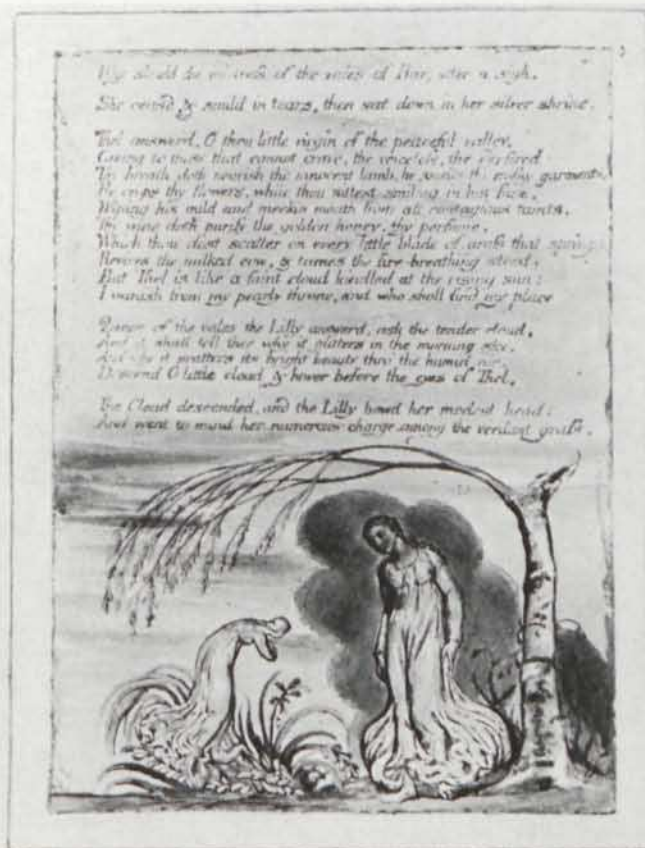 Why should the mistress of the vales of Har, utter a sigh.
She ceasd & smild in tears, then sat down in her silver shrine.
Thel answerd, O thou little virgin of the peaceful valley,
Giving to those that cannot crave, the voiceless, the
Thy breath doth nourish the innocent lamb, he smells thy milky garments,
He crops thy flowers, while thou sittest smiling in his face,
Wiping his mild and meekin mouth from all contagious taints.
Thy wine doth purify the golden honey, thy perfume,
Which thou dost scatter on every little blade of grass that springs
Revives the milked cow, & tames the fire-breathing steed.
But Thel is like a faint cloud kindled at the rising sun:
I vanish from my pearly throne, and who shall find my place
Queen of the vales the Lilly answerd, ask the tender cloud,
And it shall tell thee why it glitters in the morning sky,
And why it scatters its bright beauty thro the humid air.
Descend O little cloud & hover before the eyes of Thel.
The Cloud descended, and the Lilly bowd her modest head:
And went to mind her numerous charge among the verdant grass.